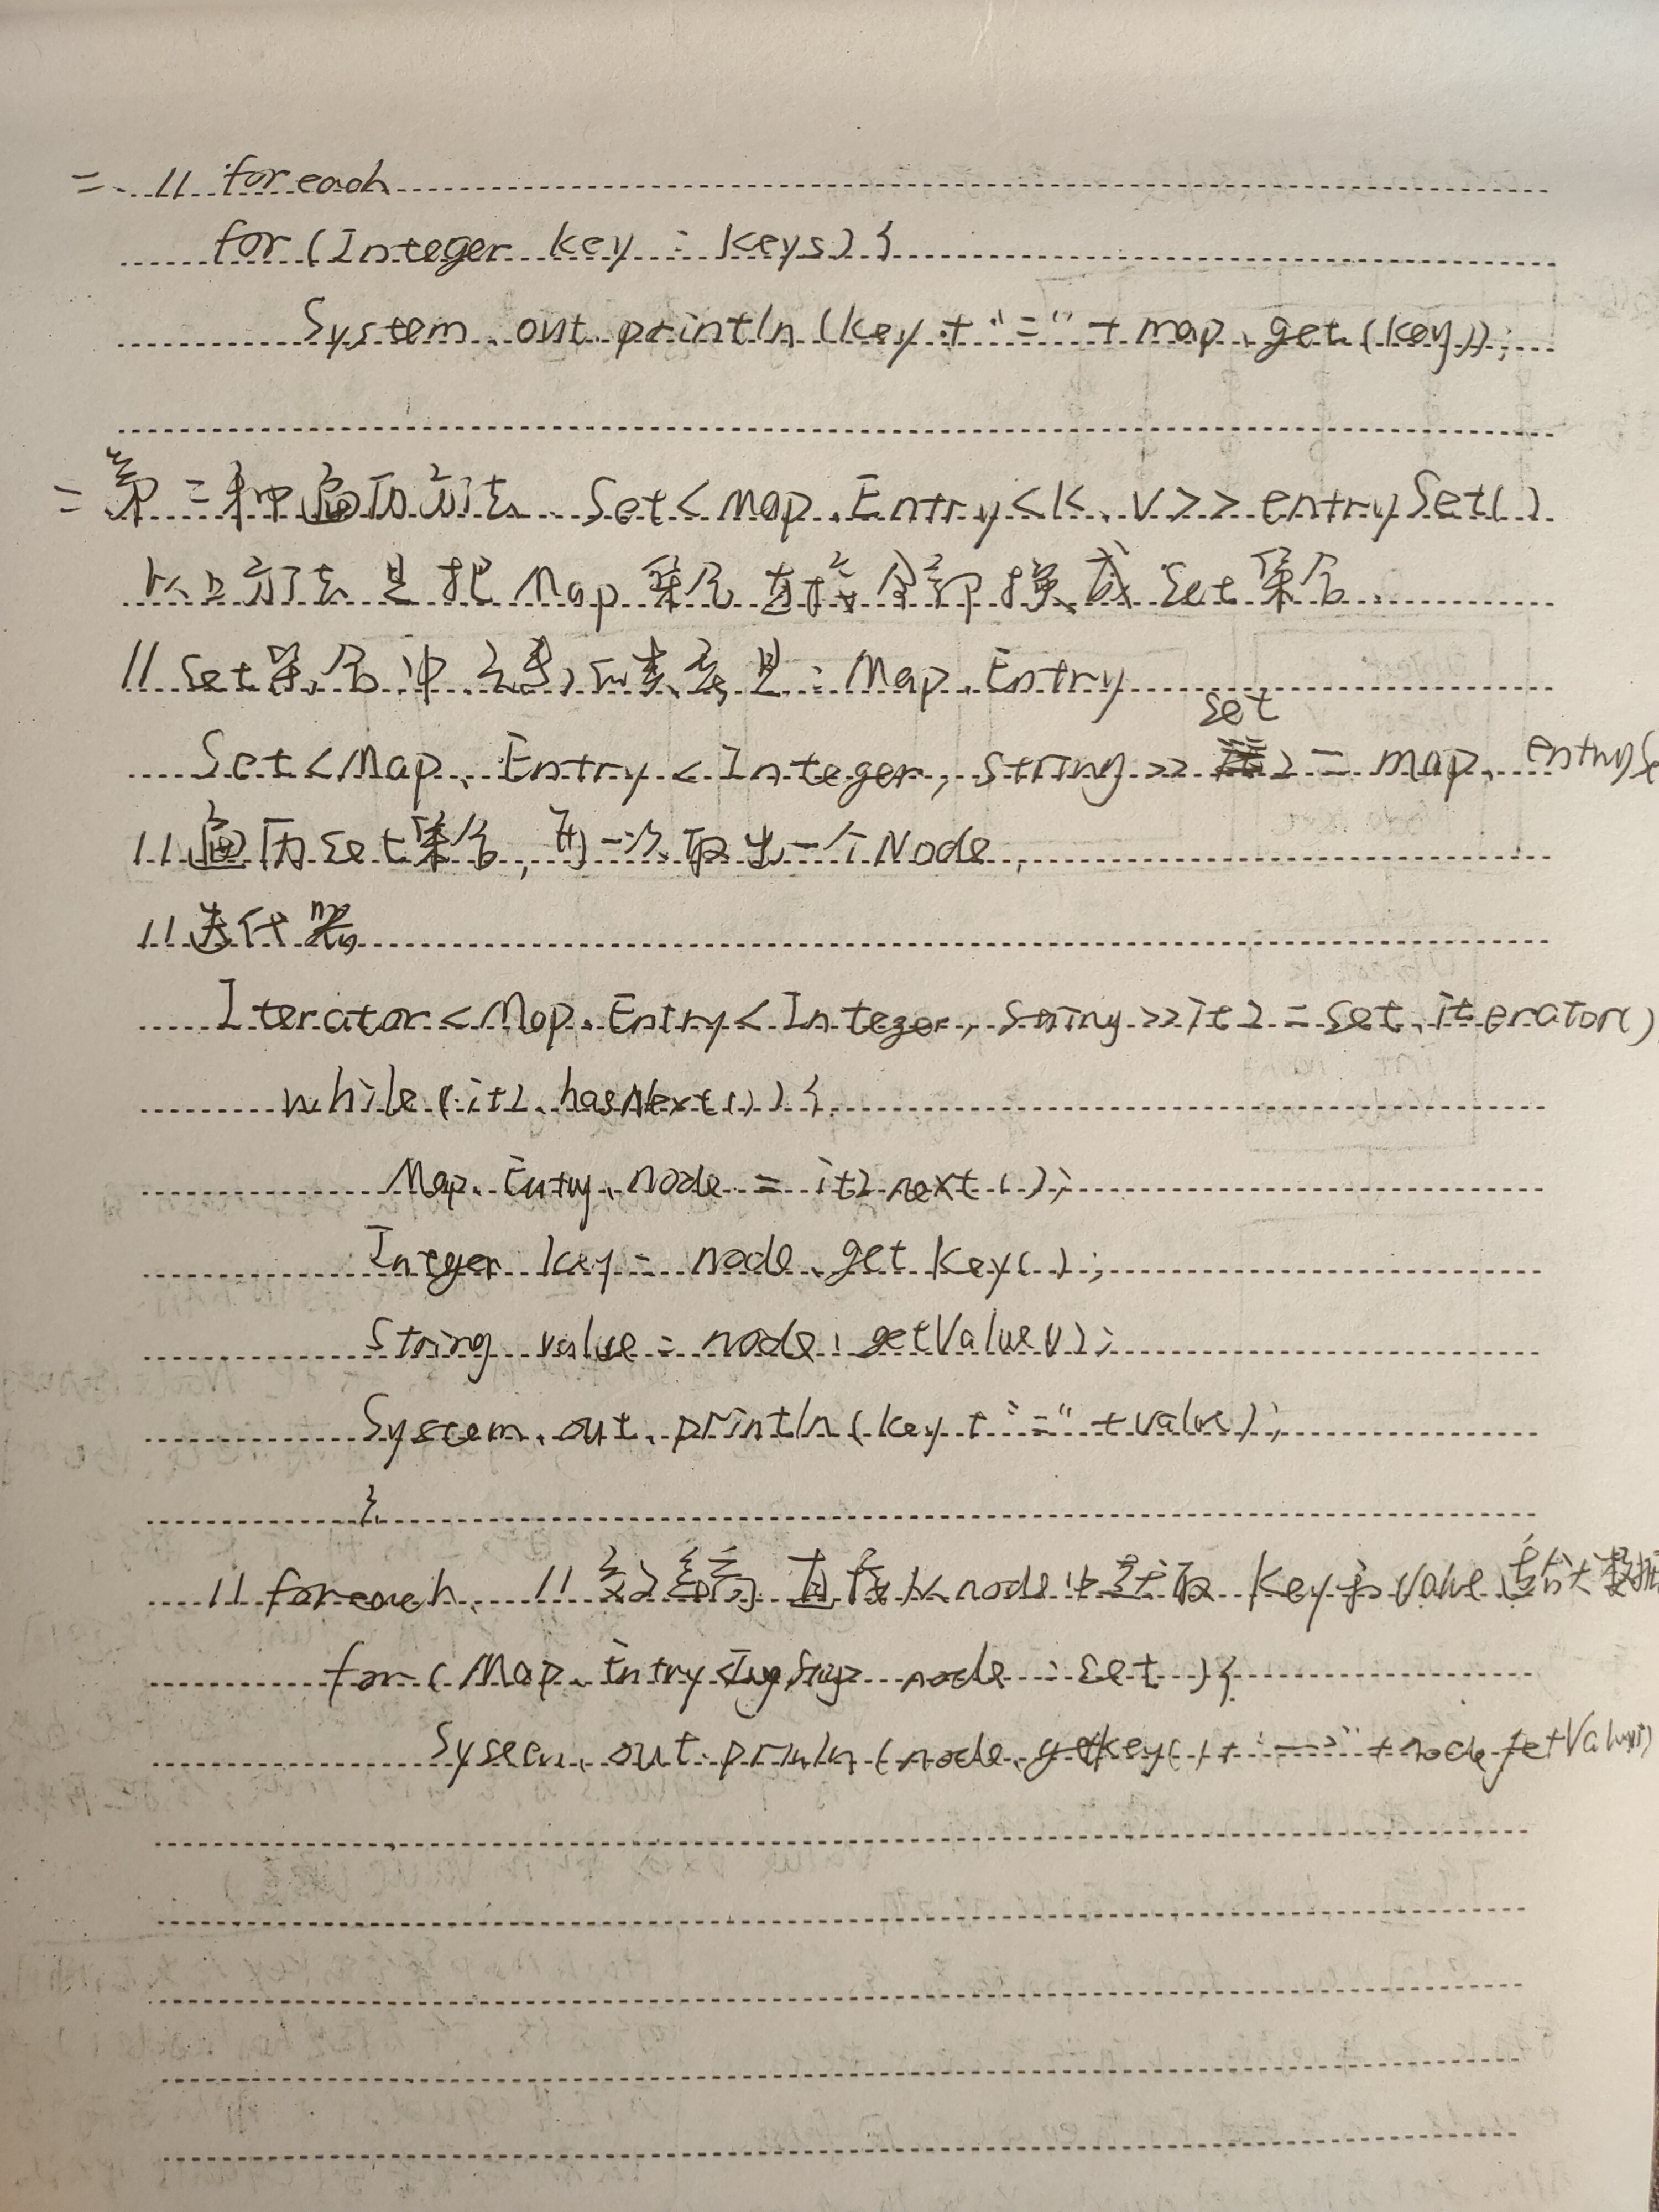 = // foreach
for (Integer key : keys) {
System.out.println(key + "=" + map.get(key));
= 第二种遍历方法 Set<Map.Entry<K,V>> entrySet()
以上方法是把Map集合直接全部换成Set集合.
// Set集合中元素的类型是: Map.Entry
Set<Map.Entry<Integer, String>> set = map.entrySe
// 遍历Set集合, 每一次取出一个Node,
// 迭代器
Iterator<Map.Entry<Integer, String>> it2 = set.iterator()
while (it2.hasNext()) {
Map.Entry node = it2.next();
Integer key = node.getKey();
String value = node.getValue();
System.out.println(key + "=" + value);
}
// foreach // 直接从node中获取 key和value 适合大数据
for (Map.Entry node : set) {
System.out.println(node.getKey() + + node.getValue()